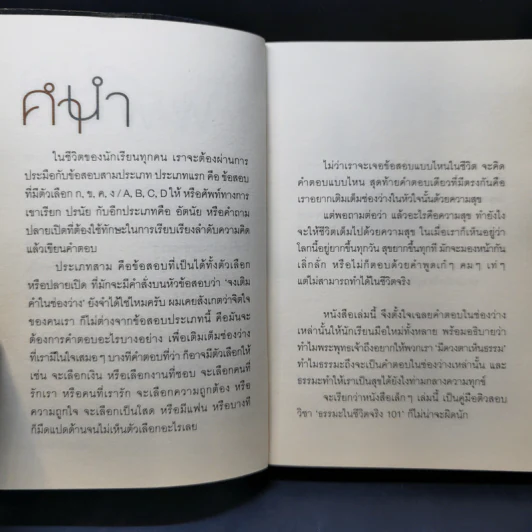 คำนำ
ในชีวิตของนักเรียนทุกคน เราจะต้องผ่านการ
ประมือกับข้อสอบสามประเภท ประเภทแรก คือ ข้อสอบ
ที่มีตัวเลือก ก. ข. ค. ง / A, B, C, D ให้ หรือศัพท์ทางการ
เขาเรียก ปรนัย กับอีกประเภทคือ อัตนัย หรือคำถาม
ปลายเปิดที่ต้องใช้ทักษะในการเรียบเรียงลำดับความคิด
แล้วเขียนคำตอบ
ประเภทสาม คือข้อสอบที่เป็นได้ทั้งตัวเลือก
หรือปลายเปิด ที่มักจะมีคำสั่งบนหัวข้อสอบว่า ‘จงเติม
คำในช่องว่าง’ ยังจำได้ใช่ไหมครับ ผมเคยสังเกตว่าจิตใจ
ของคนเรา ก็ไม่ต่างจากข้อสอบประเภทนี้ คือมันจะ
ต้องการคำตอบอะไรบางอย่าง เพื่อเติมเต็มช่องว่าง
ที่เรามีในใจเสมอๆ บางทีคำตอบที่ว่า ก็อาจมีตัวเลือกให้
เช่น จะเลือกเงิน หรือเลือกงานที่ชอบ จะเลือกคนที่
รักเรา หรือคนที่เรารัก จะเลือกความถูกต้อง หรือ
ความถูกใจ จะเลือกเป็นโสด หรือมีแฟน หรือบางที
ก็มืดแปดด้านจนไม่เห็นตัวเลือกอะไรเลย
ไม่ว่าเราจะเจอข้อสอบแบบไหนในชีวิต จะคิด
คำตอบแบบไหน สุดท้ายคำตอบเดียวที่มีตรงกันคือ
เราอยากเติมเต็มช่องว่างในหัวใจนั้นด้วยความสุข
แต่พอถามต่อว่า แล้วอะไรคือความสุข ทำยังไง
จะให้ชีวิตเต็มไปด้วยความสุข ในเมื่อเราก็เห็นอยู่ว่า
โลกนี้อยู่ยากขึ้นทุกวัน สุขยากขึ้นทุกที มักจะมองหน้ากัน
เลิ่กลั่ก หรือไม่ก็ตอบด้วยคำพูดเก๋ๆ คมๆ เท่ๆ
แต่ไม่สามารถทำได้ในชีวิตจริง
หนังสือเล่มนี้ จึงตั้งใจเฉลยคำตอบในช่องว่าง
เหล่านั้นให้นักเรียนมือใหม่ทั้งหลาย พร้อมอธิบายว่า
ทำไมพระพุทธเจ้าถึงอยากให้พวกเรา ‘มีดวงตาเห็นธรรม’
ทำไมธรรมะถึงจะเป็นคำตอบในช่องว่างเหล่านั้น และ
ธรรมะทำให้เราเป็นสุขได้ยังไงท่ามกลางความทุกข์
จะเรียกว่าหนังสือเล็กๆ เล่มนี้ เป็นคู่มือติวสอบ
วิชา ‘ธรรมะในชีวิตจริง 101’ ก็ไม่น่าจะผิดนัก